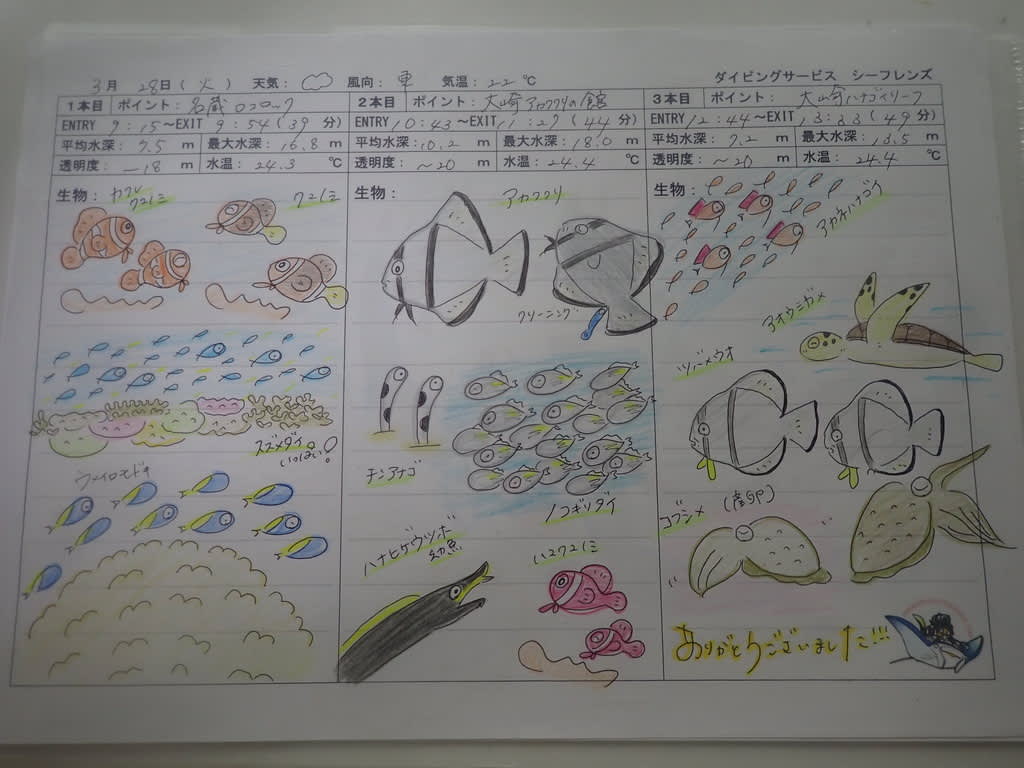 3月 28日(火) 天気: 風向: 東 気温: 22℃ ダイビングサービス シーフレンズ
1本目 ポイント: 名蔵ロコロック
ENTRY 9:15～EXIT 9:54(39分)
平均水深: 7.5 m 最大水深: 16.8 m
透明度: ～18 m 水温: 24.3 ℃
生物: カクレクマノミ クマノミ
スズメダイいっぱい!
ウメイロモドキ
2本目 ポイント: 大崎アカククリの館
ENTRY 10:43～EXIT 11:27(44分)
平均水深: 10.2 m 最大水深: 18.0 m
透明度: ～20 m 水温: 24.4 ℃
生物: アカククリ
クリーニング
チンアナゴ
ノコギリダイ
ハナヒゲウツボ
幼魚
ハマクマノミ
3本目 ポイント: 大崎ハナゴイリーフ
ENTRY 12:44～EXIT 13:33(49分)
平均水深: 7.2 m 最大水深: 13.5 m
透明度: ～20 m 水温: 24.4 ℃
生物: アカネハナゴイ
アオウミガメ
ツバメウオ
コブシメ (産卵)
ありがとうございました!!!